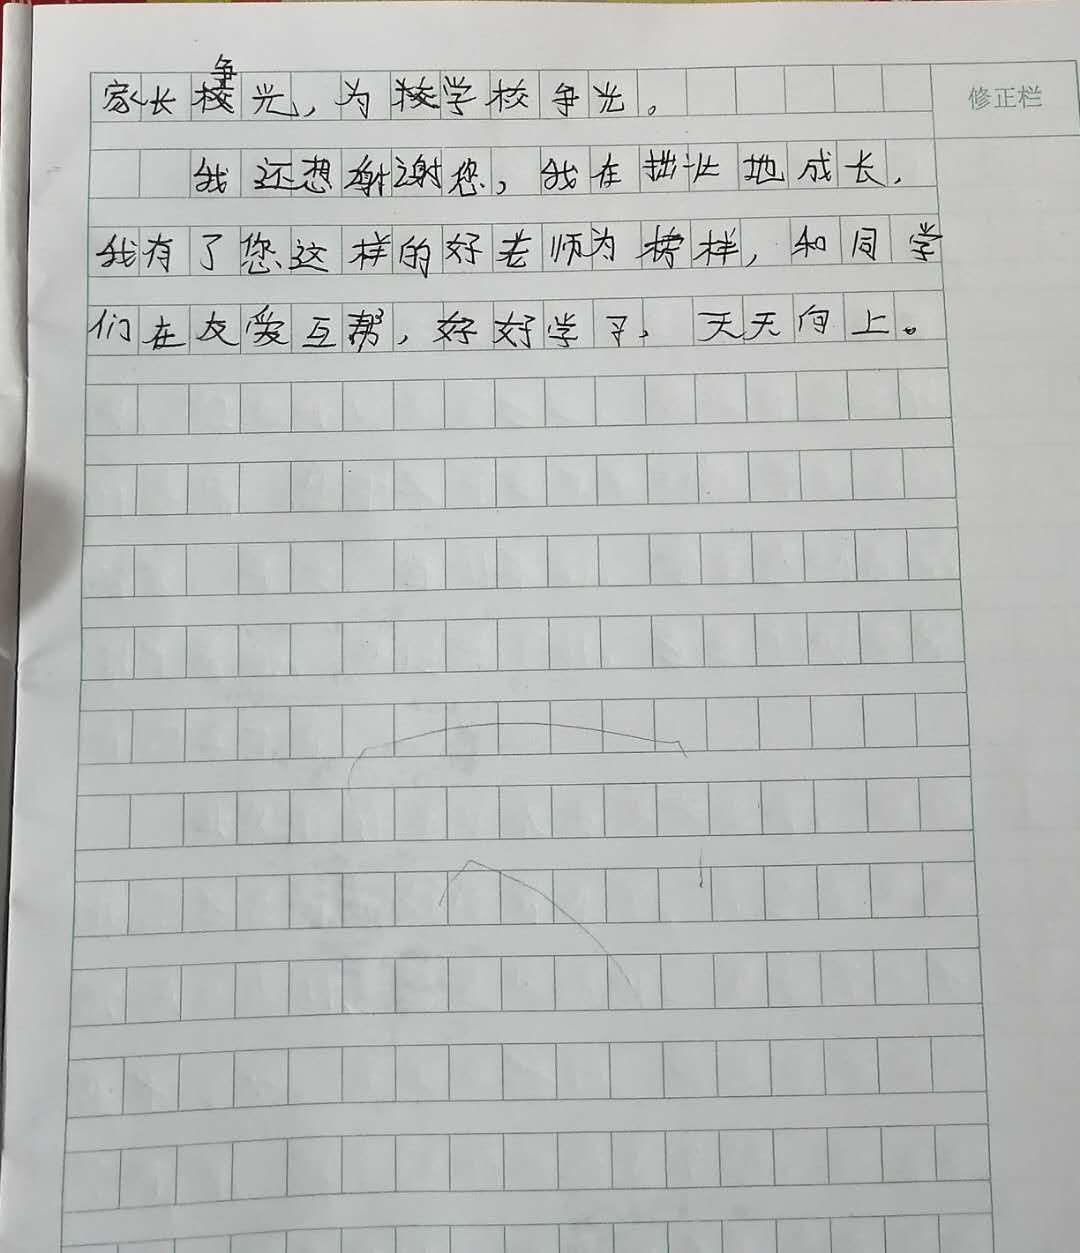 家长争光，为学校争光。
修正栏
我还想谢谢您，我在拙让地成长，
我有了您这样的好老师为榜样，和同学
们在友爱互帮，好好学习，天天向上。